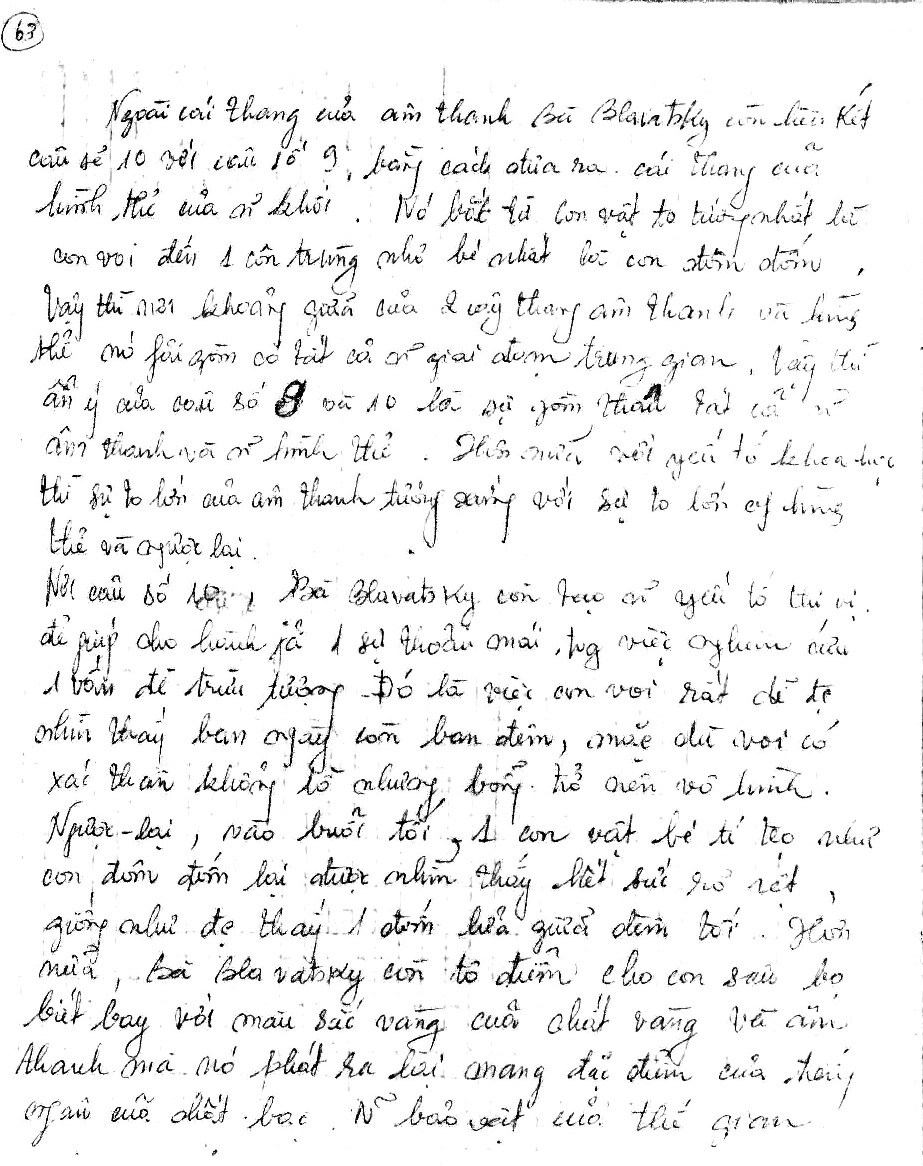 63
Ngoài cái thang của âm thanh Bà Blavatsky còn liên kết
câu số 10 với câu số 9, bằng cách đưa ra cái thang của
hình thể của sự khối. Nó bắt từ con vật to tướng nhất là
con voi đến 1 côn trùng nhỏ bé nhất là con đôm đốm,
Vậy thì nơi khoảng giữa của 2 thang âm thanh và hình
thể nó fải gồm có tất cả ~ giai đoạn trung gian. Vậy thì
ẩn ý của câu số 9 và 10 là sự gồm thâu tất cả ~
âm thanh và ~ hình thể. Hơn nữa với yếu tố khoa học
thì sự to lớn của âm thanh tương xứng với sự to lớn of hình
thể và ngược lại.
Nơi câu số 10, Bà Blavatsky còn tạo ~ yếu tố thi vị
để giúp cho hành jả 1 sự thoải mái, tng việc nghiên cứu
1 vấn đề trừu tượng. Đó là việc con voi rất dễ đc
nhìn thấy ban ngày còn ban đêm, mặc dù voi có
xác thân khổng lồ nhưng bổng trở nên vô hình.
Ngược-lại, vào buổi tối, 1 con vật bé tí teo như
con đôm đốm lại được nhìn thấy hết sức rỏ rệt,
giống như đc thấy 1 đóm lửa giữa đêm tối. Hơn
nữa, Bà Blavatsky còn tô điểm cho con sâu bọ
biết bay với màu sắc vàng của chất vàng và âm
thanh mà nó phát ra lại mang đặc điểm của
ngân của chất bạc. ~ bảo vật của thế gian